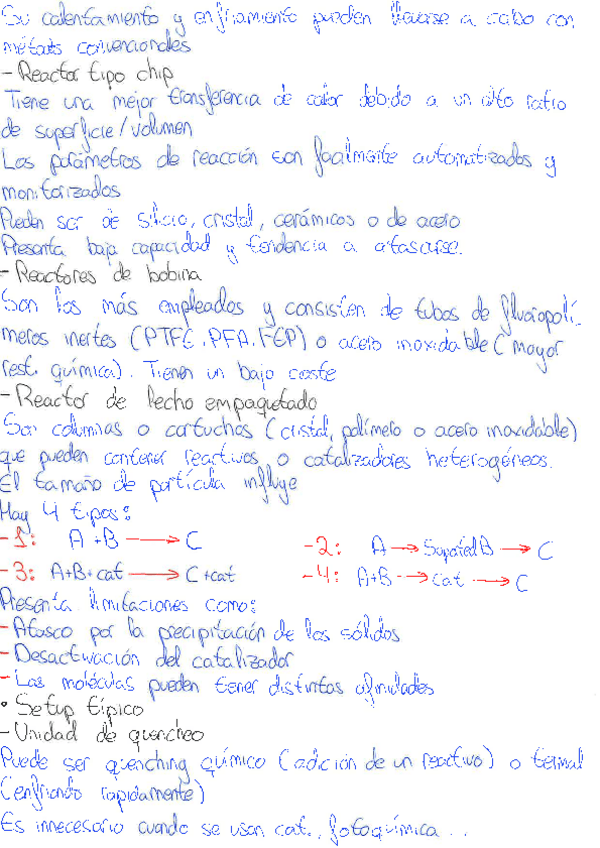 Su calentamiento y enfriamiento pueden llevarse a cabo con
métodos convencionales
- Reactor tipo chip
Tiene una mejor transferencia de calor debido a un alto ratio
de superficie/volumen
Los parámetros de reacción son facilmente automatizados y
monitorizados
Pueden ser de silicio, cristal, cerámicos o de acero
Presenta baja capacidad y tendencia a atascarse.
- Reactores de bobina
Son los más empleados y consisten de tubos de fluoropolí-
meros inertes (PTFE, PFA, FEP) o acero inoxidable (mayor
rest. química). Tienen un bajo coste
- Reactor de lecho empaquetado
Son columnas o cartuchos (cristal, polímero o acero inoxidable)
que pueden contener reactivos o catalizadores heterogéneos.
El tamaño de partícula influye
Hay 4 tipos:
- 1: A + B → C - 2: A → Suported B → C
- 3: A+B+cat → C+cat - 4: A+B → cat → C
Presenta limitaciones como:
- Atasco por la precipitación de los sólidos
- Desactivación del catalizador
- Las moléculas pueden tener distintas afinidades
• Setup típico
- Unidad de quencheo
Puede ser quenching químico (adición de un reactivo) o termal
(enfriando rapidamente)
Es innecesario cuando se usan cat., fotoquímica...